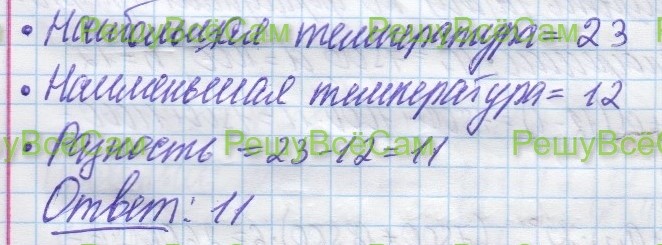 • Наибольшая температура = 23
• Наименьшая температура = 12
• Разность = 23-12=11
Ответ: 11
РешуВсёСам РешуВсёСам РешуВсёСам
РешуВсёСам РешуВсёСам